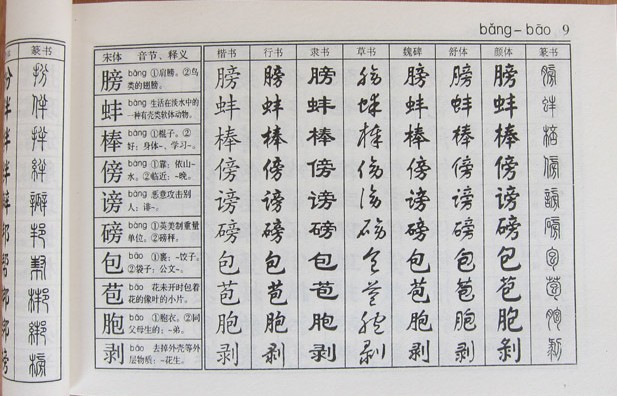 篆书
bǎng－bāo 9
宋体 音节、释义 楷书 行书 隶书 草书 魏碑 舒体 颜体 篆书
膀 bǎng ①肩膀。②鸟
类的翅膀。 膀 膀 膀 膀 膀 膀 膀 膀
蚌 bàng 生活在淡水中的
一种有壳类软体动物。 蚌 蚌 蚌 蚌 蚌 蚌 蚌 蚌
棒 bàng ①棍子。②
好：身体~、学习~。 棒 棒 棒 棒 棒 棒 棒 棒
傍 bàng ①靠：依山~
水。②临近：~晚。 傍 傍 傍 傍 傍 傍 傍 傍
谤 bàng 恶意攻击别
人：诽~。 谤 谤 谤 谤 谤 谤 谤 谤
磅 bàng ①英美制重量
单位。②磅秤。 磅 磅 磅 磅 磅 磅 磅 磅
包 bāo ①裹：~饺子。
②袋子：公文~。 包 包 包 包 包 包 包 包
苞 bāo 花未开时包着
花的像叶的小片。 苞 苞 苞 苞 苞 苞 苞 苞
胞 bāo ①胞衣。②同
父母生的：~弟。 胞 胞 胞 胞 胞 胞 胞 胞
剥 bāo 去掉外壳等外
层物质：~花生。 剥 剥 剥 剥 剥 剥 剥 剥